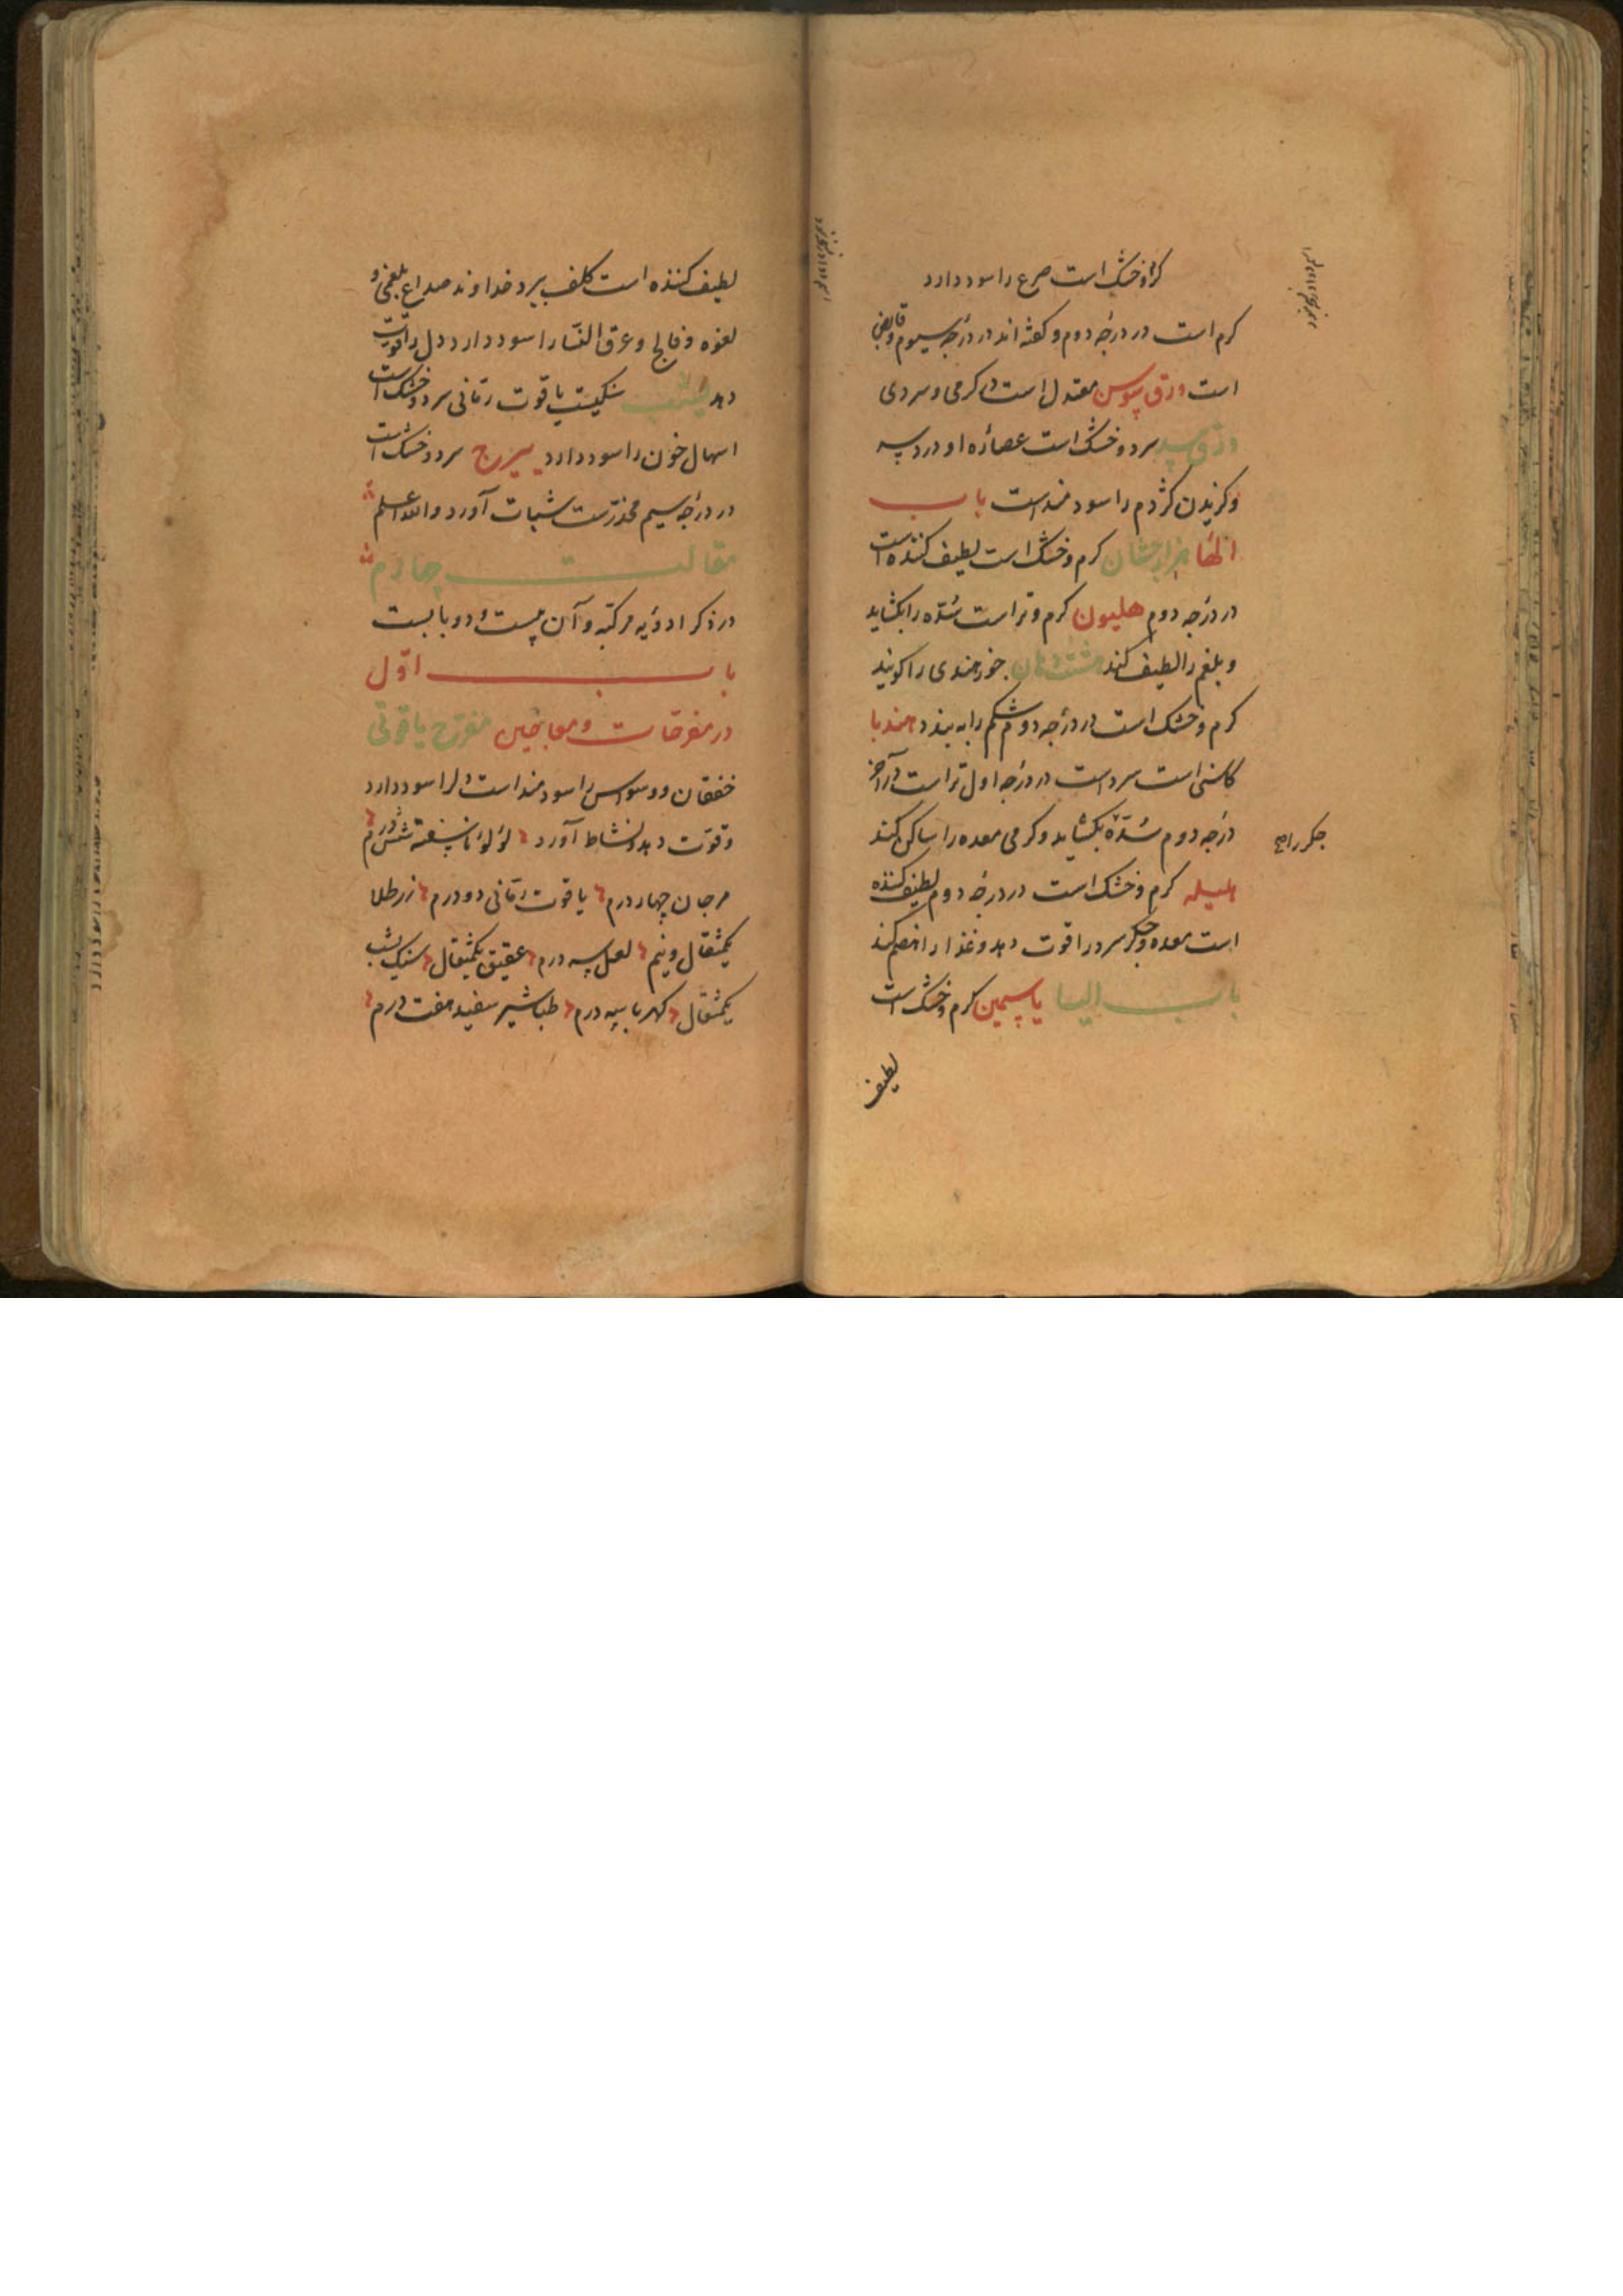 کرم وخشک است صرع را سود دارد
کرم است در درجه دوم و کفته اند در درجه سیوم و قابض
است ورق سوس معتدل است در کرمی و سردی
ورق سرد و خشک است عصاره او درد سه
و کزیدن کژدم را سودمند است باب
الها هزارجشان کرم و خشک است لطیف کننده است
در درجه دوم هلیون کرم و تر است سده را بکشاید
و بلغم را لطیف کند هشت دهان خوز هندی را کویند
کرم و خشک است در درجه دوم شکم را به بندد هندبا
کاسنی است سرد است در درجه اول تر است در آخر
درجه دوم سده بکشاید و کرمی معده را ساکن کند
جکر را
هلیله کرم و خشک است در درجه دوم لطیف کننده
است معده و جکر سرد را قوت دهد و غذا را هضم کند
باب الیا یاسمین کرم و خشک است
لطیف
لطیف کننده است کلف ببرد خداوند صداع بلغمی و
لقوه و فالج و عرق النسا را سود دارد دل را قوت
دهد یشب سنکیست یاقوت رمانی سرد و خشک است
اسهال خون را سود دارد یبروج سرد و خشک است
در درجه سیم مخدرست سبات آورد والله اعلم
مقالت چهارم
در ذکر ادویه مرکبه و آن بیست و دو بابست
باب اول
در مفرحات و معاجین مفرح یاقوتی
خفقان و وسواس را سودمند است دل را سود دارد
و قوت دهد و نشاط آورد لؤلؤ ناسفته شش درم
مرجان چهار درم یاقوت رمانی دو درم زر طلا
یکمثقال و نیم لعل سه درم عقیق یکمثقال سنک یشب
یکمثقال کهربا سه درم طباشیر سفید هفت درم